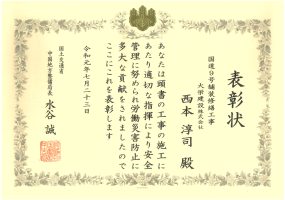 表彰状
国道9号舗装修繕工事
大栄建設株式会社
西本淳司 殿
あなたは頭書の工事の施工に
あたり適切な指揮により安全
管理に努められ労働災害防止に
多大な貢献をされましたので
ここにこれを表彰します
令和元年七月二十三日
国土交通省
中国地方整備局長
水谷 誠